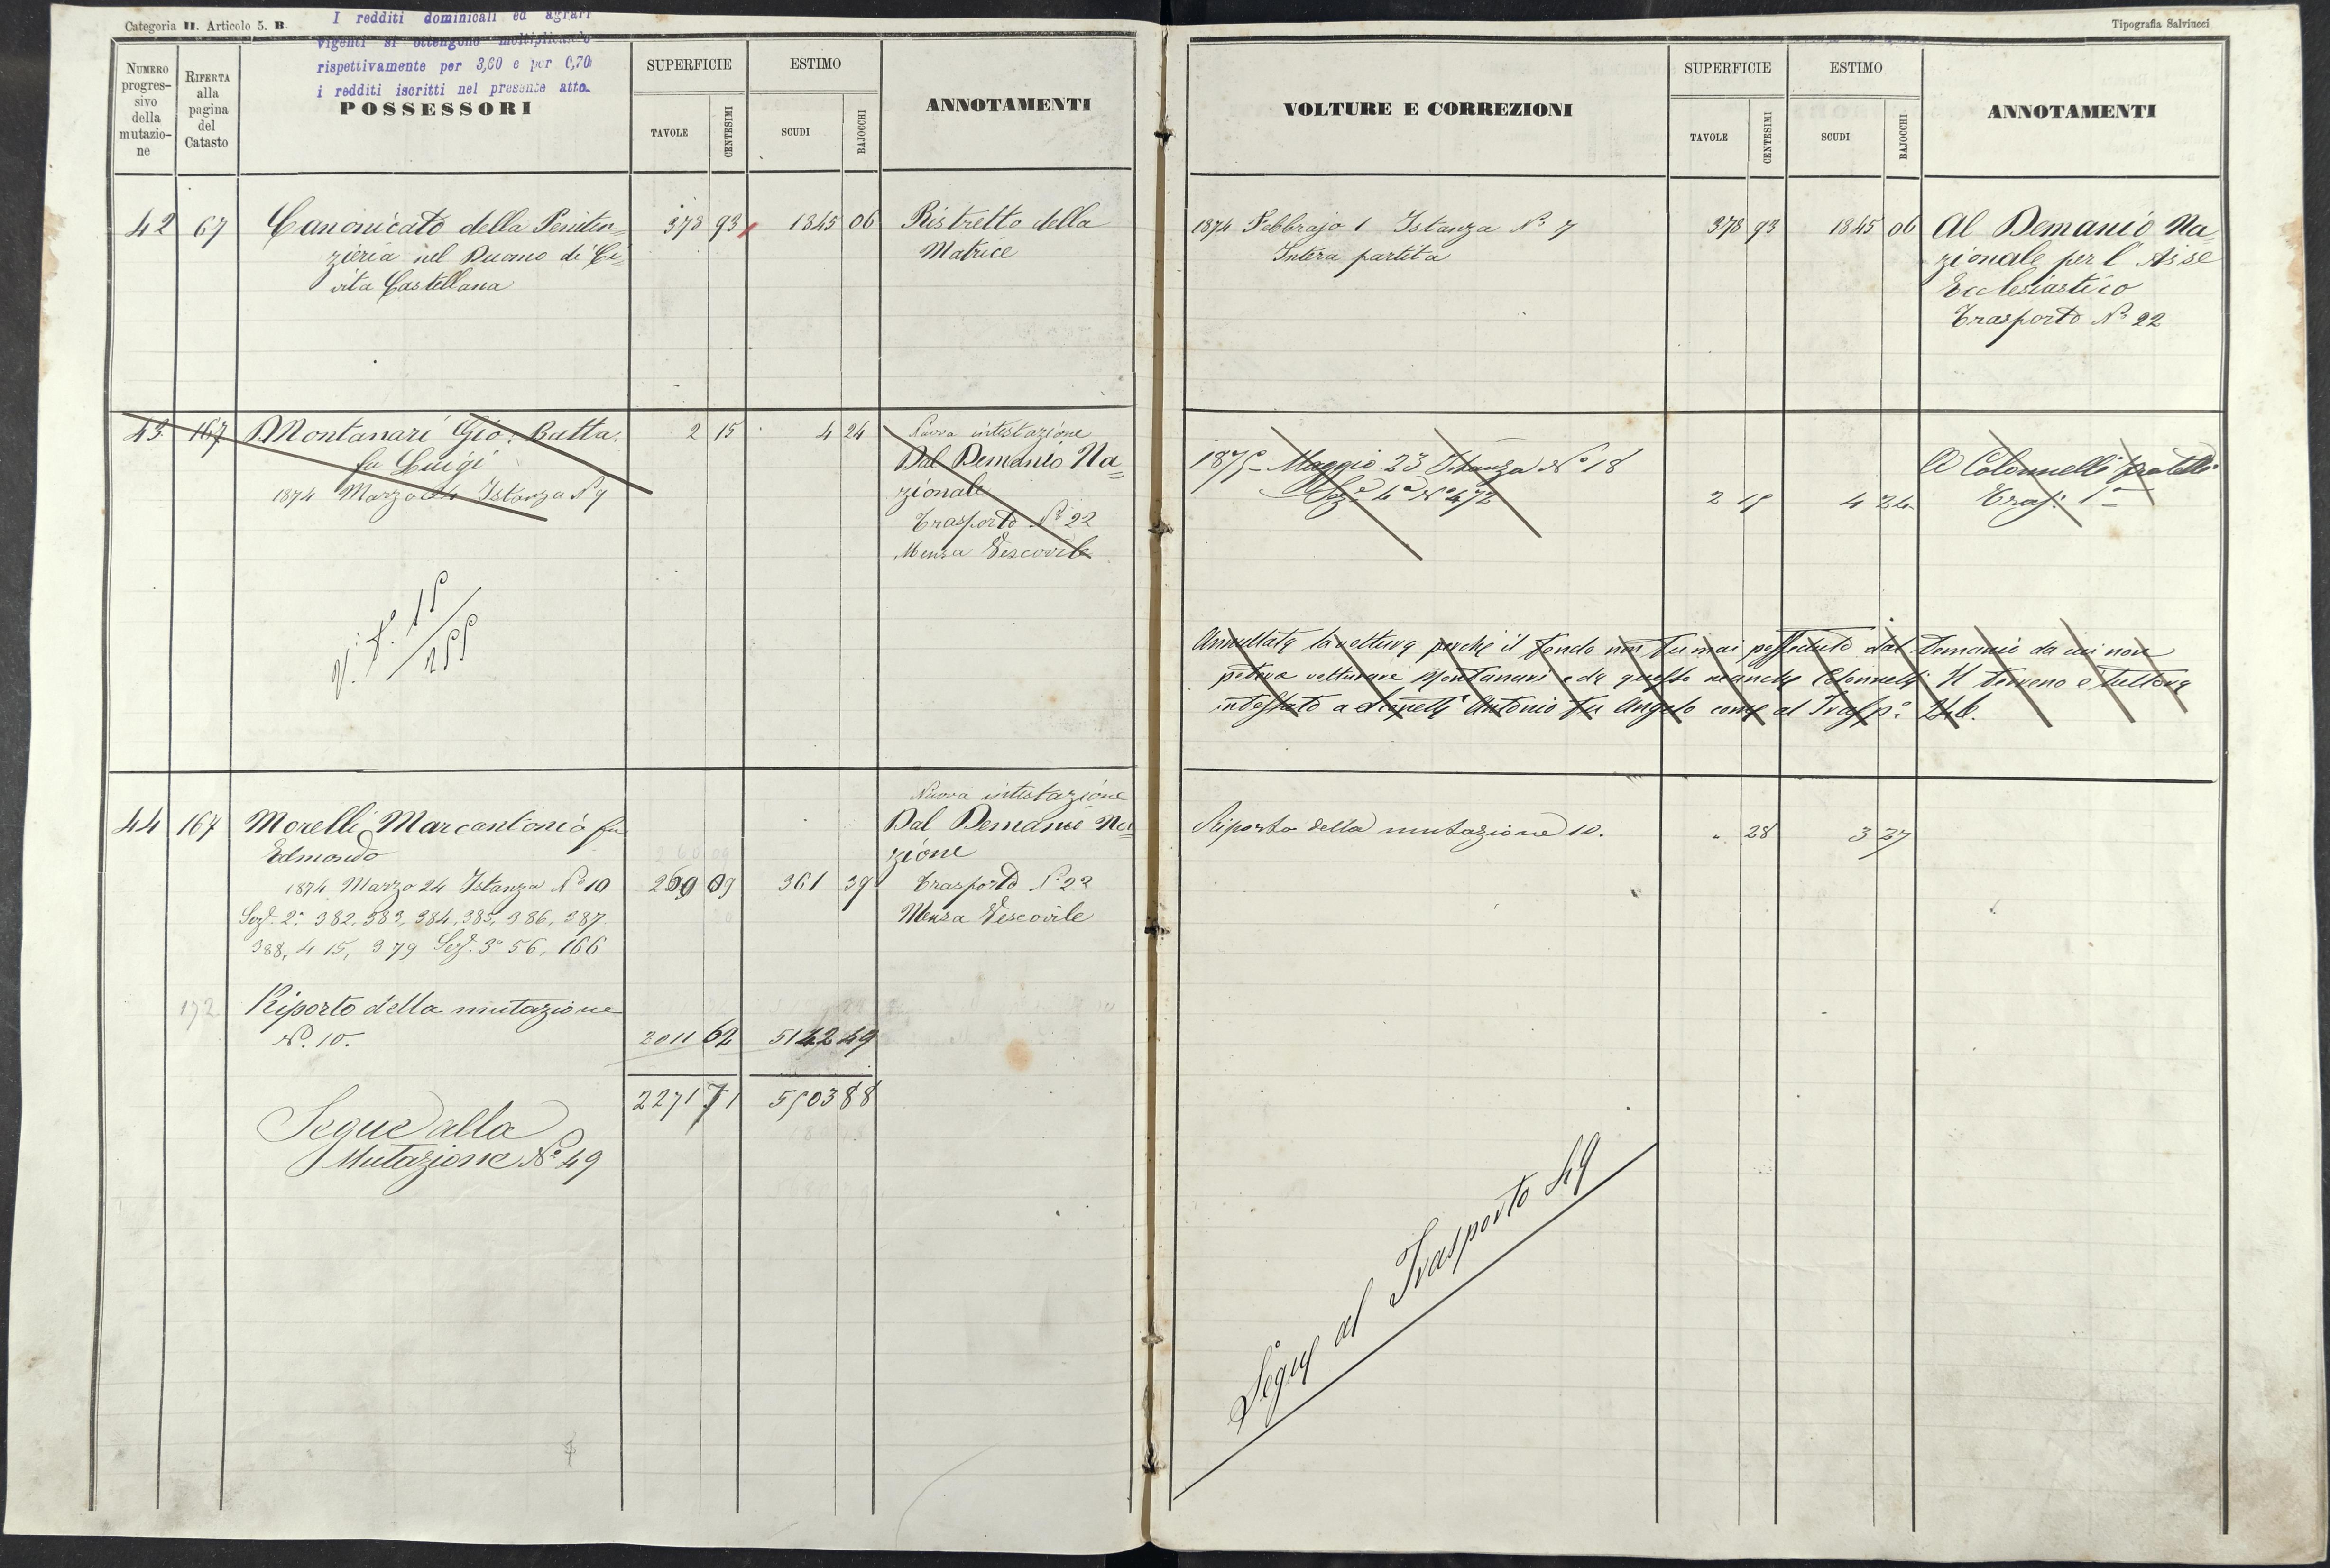 Categoria II. Articolo 5. B.
I redditi dominicali ed agrari
vigenti si ottengono moltiplicando
rispettivamente per 3,60 e per 0,70
i redditi iscritti nel presente atto.
NUMERO progres-
sivo
della
mutazio-
ne
RIFERTA
alla
pagina
del
Catasto
POSSESSORI
SUPERFICIE
TAVOLE
CENTESIMI
ESTIMO
SCUDI
BAJOCCHI
ANNOTAMENTI
42 67 Canonicato della Peniten= 378 93 1845 06 Ristretto della
zieria nel Duomo di Ci= Matrice
vita Castellana
43 167 Montanari Gio: Batta. 2 15 4 24 Nuova intestazione
fu Luigi Dal Demanio Na=
1874 Marzo 24 Istanza N° 9 zionale
Trasporto N° 22
Mensa Vescovile
V. f.° 15
255
44 167 Morelli Marcantonio fu Nuova intestazione
Edmondo Dal Demanio Na=
zione
1874 Marzo 24 Istanza N° 10 260 09 361 39 Trasporto N° 22
Sez. 2a 382, 383, 384, 385, 386, 387. Mensa Vescovile
388, 415, 379 Sez. 3a 56, 166
172 Riporto della mutazione
N°. 10. 2011 62 5142 49
2271 71 5503 88
Segue alla
Mutazione N° 49
Tipografia Salviucci
VOLTURE E CORREZIONI
SUPERFICIE
TAVOLE
CENTESIMI
ESTIMO
SCUDI
BAJOCCHI
ANNOTAMENTI
1874 Febbrajo 1 Istanza N° 7 378 93 1845 06 Al Demanio Na=
Intera partita zionale per l'Asse
Ecclesiastico
Trasporto N° 22
1875 Maggio 23 Istanza N° 18 A Colonnelli fratelli
Sez.e 4a N° 472 2 15 4 24 Trasp. 1°
Annullata la voltura perchè il fondo non fu mai posseduto dal Demanio da cui non
poteva volturare Montanari e da questo neanche Colonnelli. Il terreno è tuttora
intestato a Antonio fu Angelo come al Trasp.°
Riporto della mutazione 10. " 28 3 27
Segue al Trasporto 49